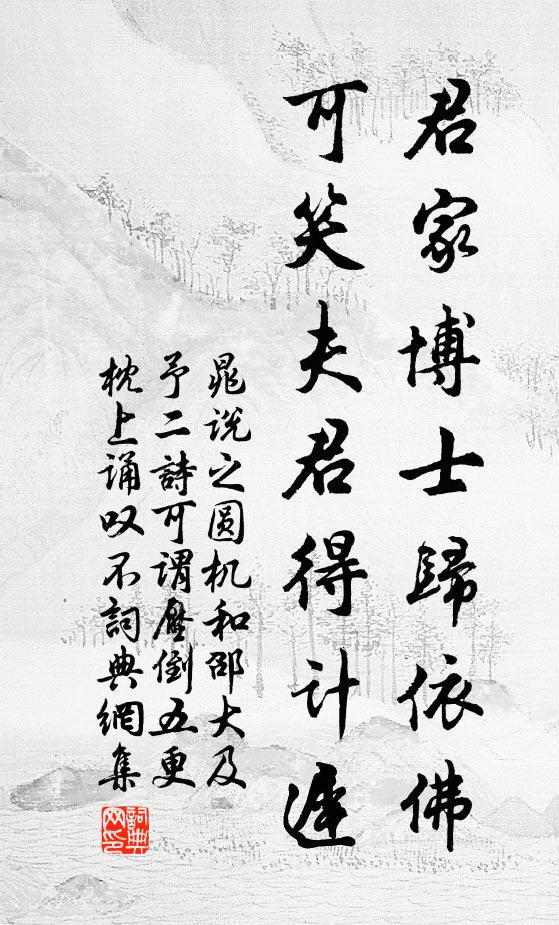 君家博士歸依佛
可笑夫君得计遲
晁说之圆机和邵大及
予二詩可謂壓倒五更
枕上诵叹不詞典網集
詞典
网印